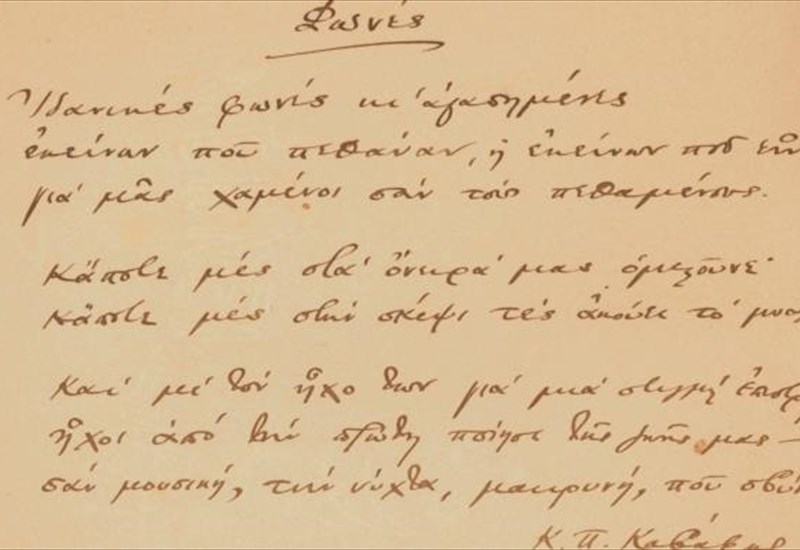 Φωνές
Ἰδανικές φωνές κι' ἀγαπημένες
ἐκείνων ποῦ πεθάναν, ἤ ἐκείνων ποῦ εἶν
γιά μᾶς χαμένοι σάν τούς πεθαμένους.
Κάποτε μές στά ὄνειρά μας ὁμιλοῦνε·
κάποτε μές στήν σκέψι τές ἀκούει τό μυα
Καί μέ τόν ἦχο των γιά μιά στιγμή ἐπιστρ
ἦχοι ἀπό τήν πρώτη ποίησι τῆς ζωῆς μας —
σάν μουσική, τήν νύχτα, μακρυνή, ποῦ σβύν
Κ. Π. Καβάφης